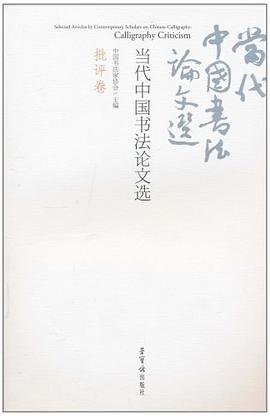 Selected Articles by Contemporary Scholars on Chinese Calligraphy:
Calligraphy Criticism
當代
中國書法
論文選
当代中国书法论文选
中国书法家协会/主编
批评卷
荣宝斋出版社